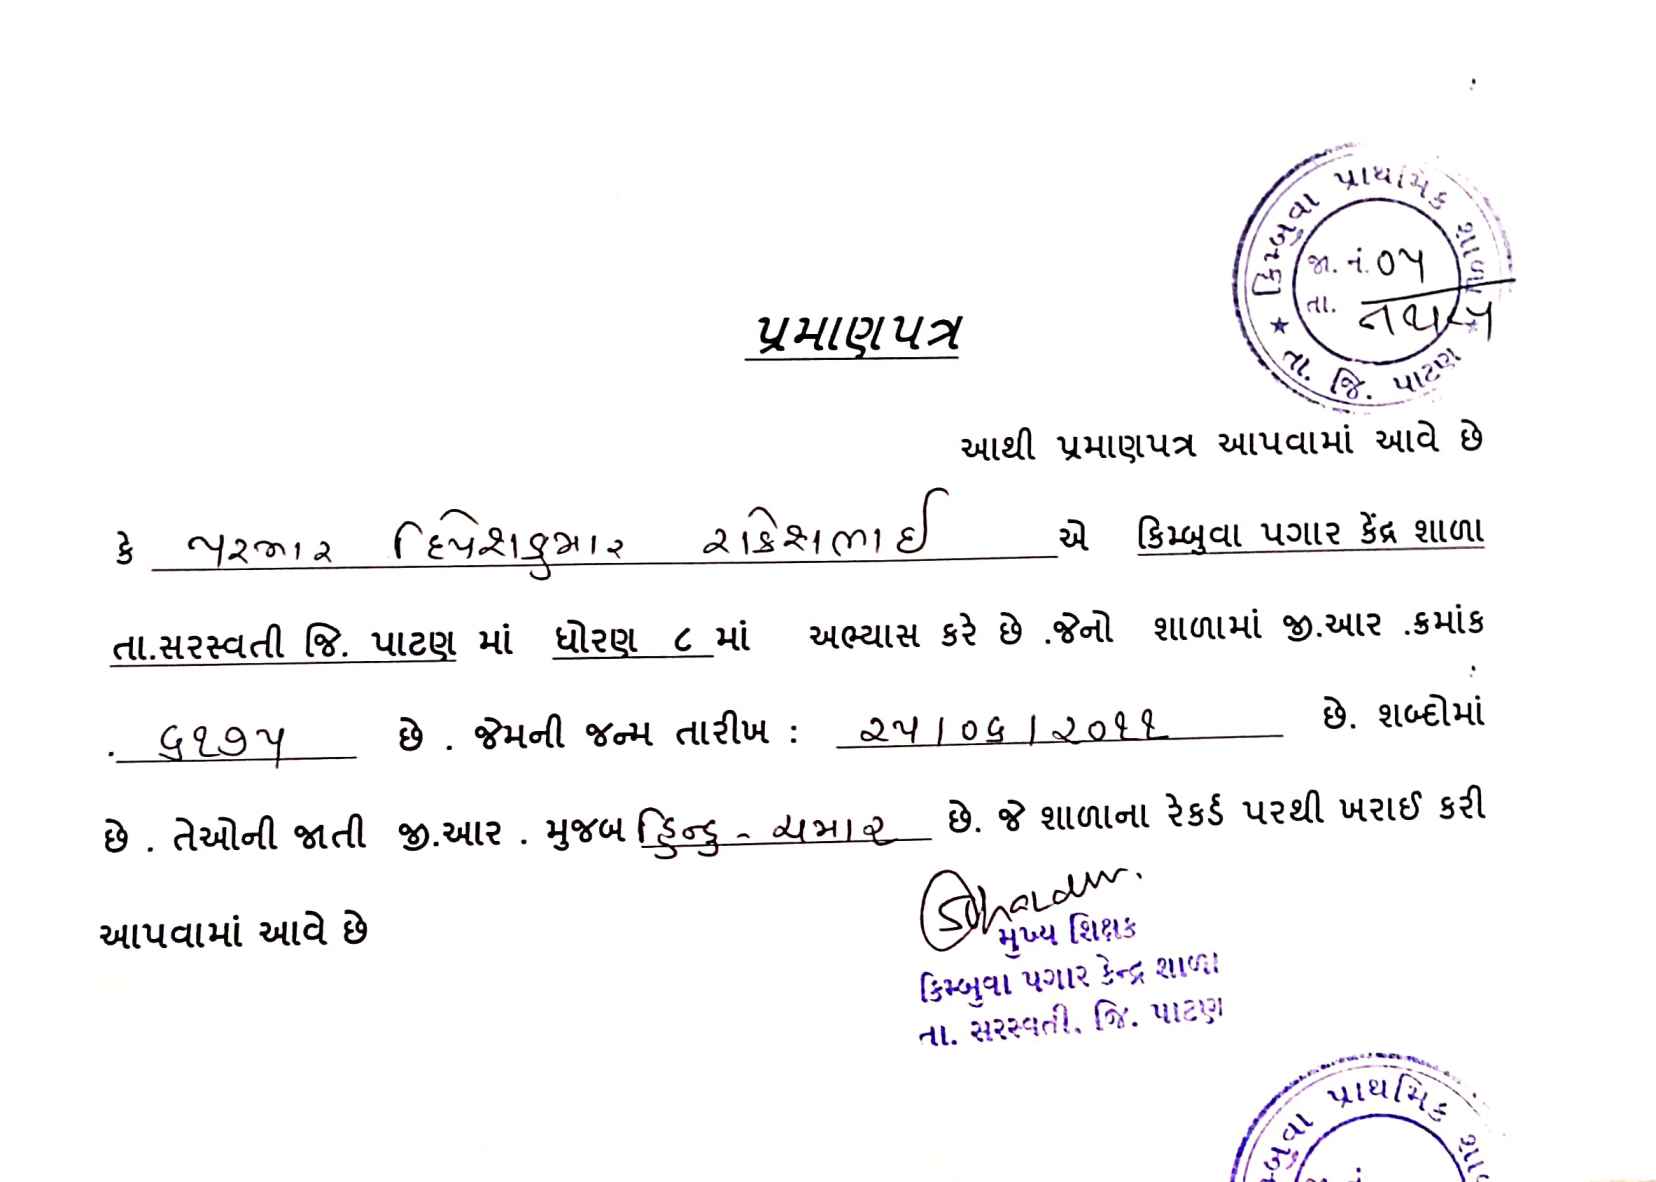 કિમ્બુવા પ્રાથમિક શાળા
જા. નં. ૦૫
તા.
★ તા. જિ. પાટણ ★
પ્રમાણપત્ર
આથી પ્રમાણપત્ર આપવામાં આવે છે
કે પરમાર દિપેશકુમાર રાકેશભાઈ એ કિમ્બુવા પગાર કેંદ્ર શાળા
તા.સરસ્વતી જિ. પાટણ માં ધોરણ ૮ માં અભ્યાસ કરે છે .જેનો શાળામાં જી.આર .ક્રમાંક
. ૬૧૭૫ છે . જેમની જન્મ તારીખ : ૨૫/૦૬/૨૦૧૧ છે. શબ્દોમાં
છે . તેઓની જાતી જી.આર . મુજબ હિન્દુ - ચમાર છે. જે શાળાના રેકર્ડ પરથી ખરાઈ કરી
આપવામાં આવે છે
મુખ્ય શિક્ષક
કિમ્બુવા પગાર કેન્દ્ર શાળા
તા. સરસ્વતી. જિ. પાટણ
પ્રાથમિક